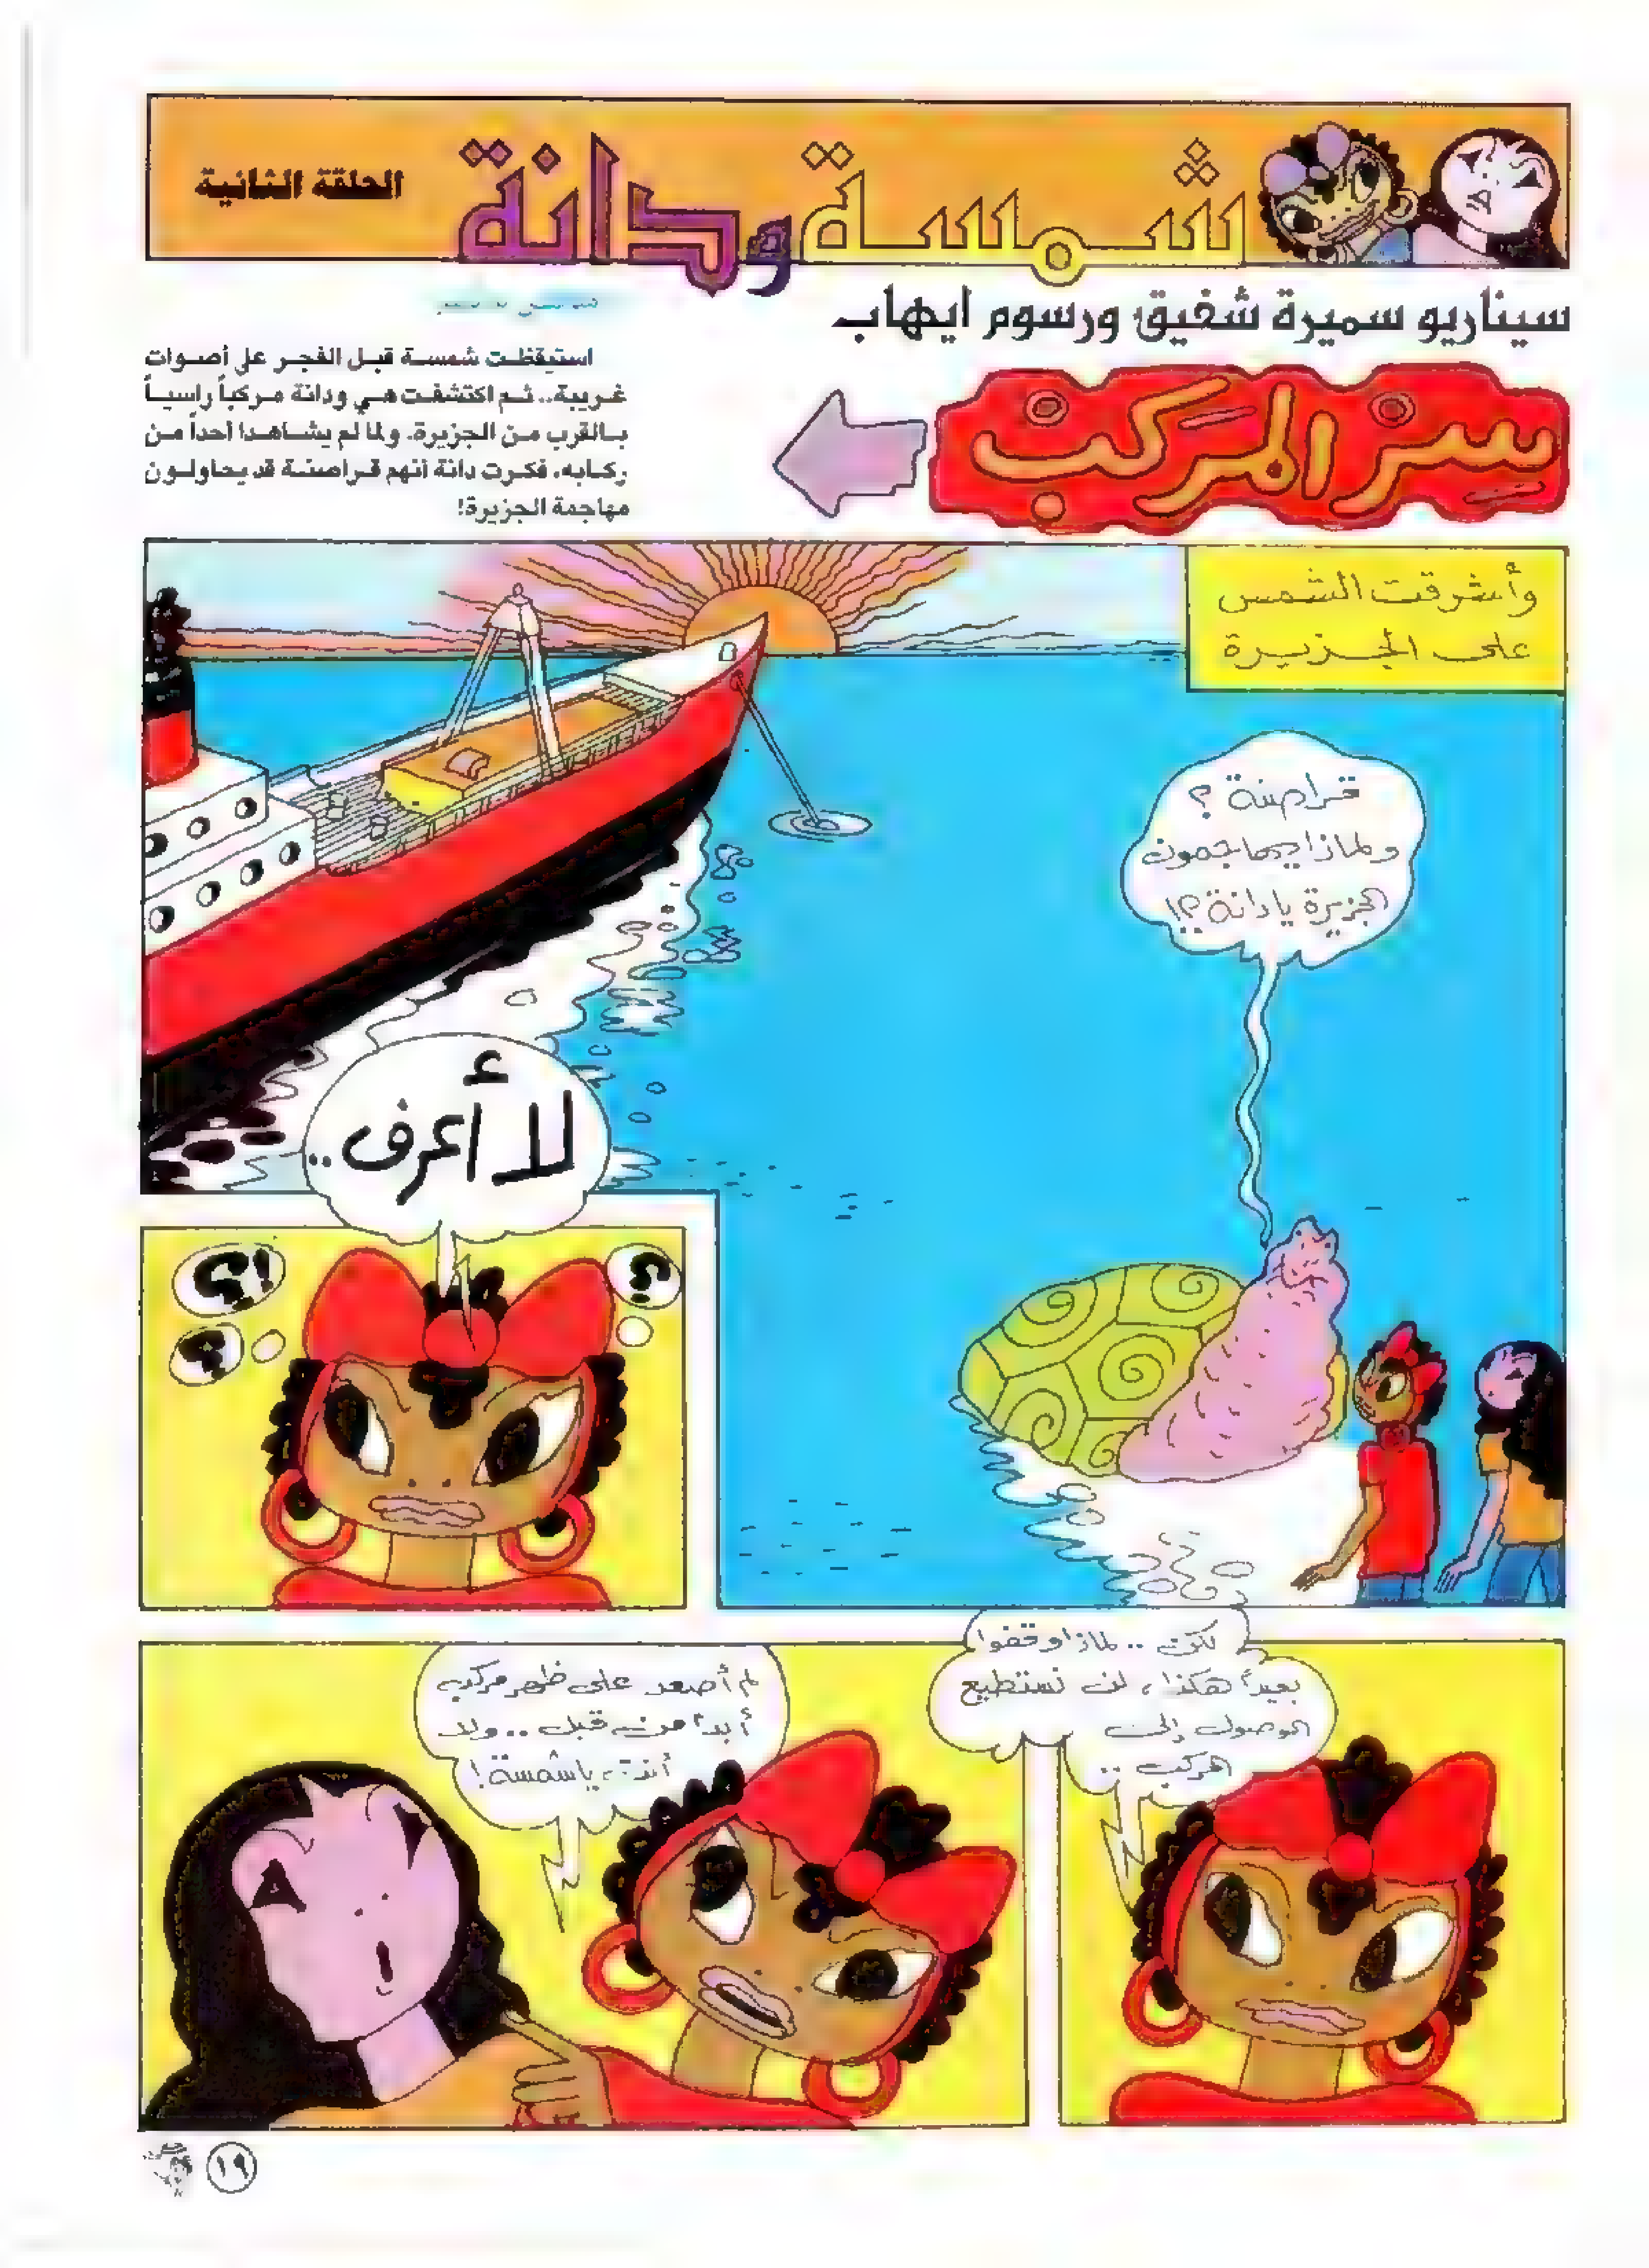 شمسة ودانة
الحلقة الثانية
سيناريو سميرة شفيق ورسوم ايهاب
سر المركب
استيقظت شمسة قبل الفجر على أصوات
غريبة.. ثم اكتشفت هي ودانة مركباً راسياً
بالقرب من الجزيرة. ولما لم يشاهدا أحداً من
ركابه، فكرت دانة أنهم قراصنة قد يحاولون
مهاجمة الجزيرة!
وأشرقت الشمس
على الجزيرة
قراصنة ؟
ولماذا يهاجمون
الجزيرة يا دانة ؟!
لا أعرف..
؟
؟!
؟
لكن .. لماذا وقفوا
بعيداً هكذا، لن نستطيع
الوصول إلى
المركب ..
لم أصعد على ظهر مركب
أبداً من قبل .. ولا
أنت يا شمسة !
١٩